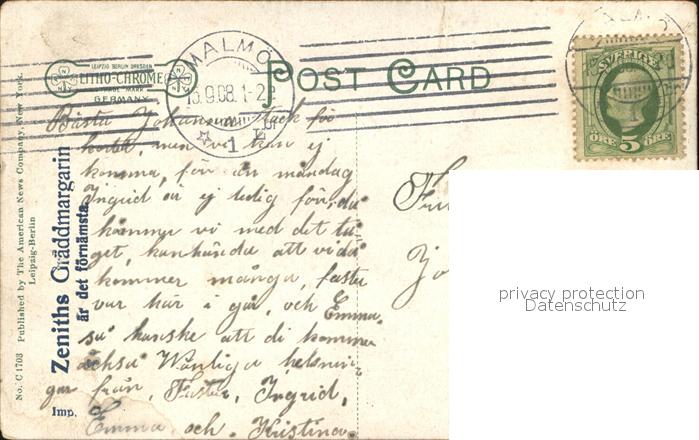 LEIPZIG BERLIN DRESDEN
LITHO-CHROME
TRADE MARK
GERMANY
POST CARD
MALMÖ
15.9.08. 1-2
1
MALMÖ
SVERIGE
ÖRE 5 ÖRE
No. C 1703 Published by The American News Company, New York.
Leipzig-Berlin
Zeniths Gräddmargarin
är det förnämsta.
Imp.
Bästa Johanna tack för
kortet, men vi kan ej
komma, för än måndag
Ingrid är ej ledig förr, då
kommer vi med det tå
get, kanhända att vida
kommer många, faster
var här i går, och Emma
så kanske att di kommer
också Vänliga helsnin
gar från, Faster, Ingrid,
Emma och Kristina.
Jo
privacy protection
Datenschutz